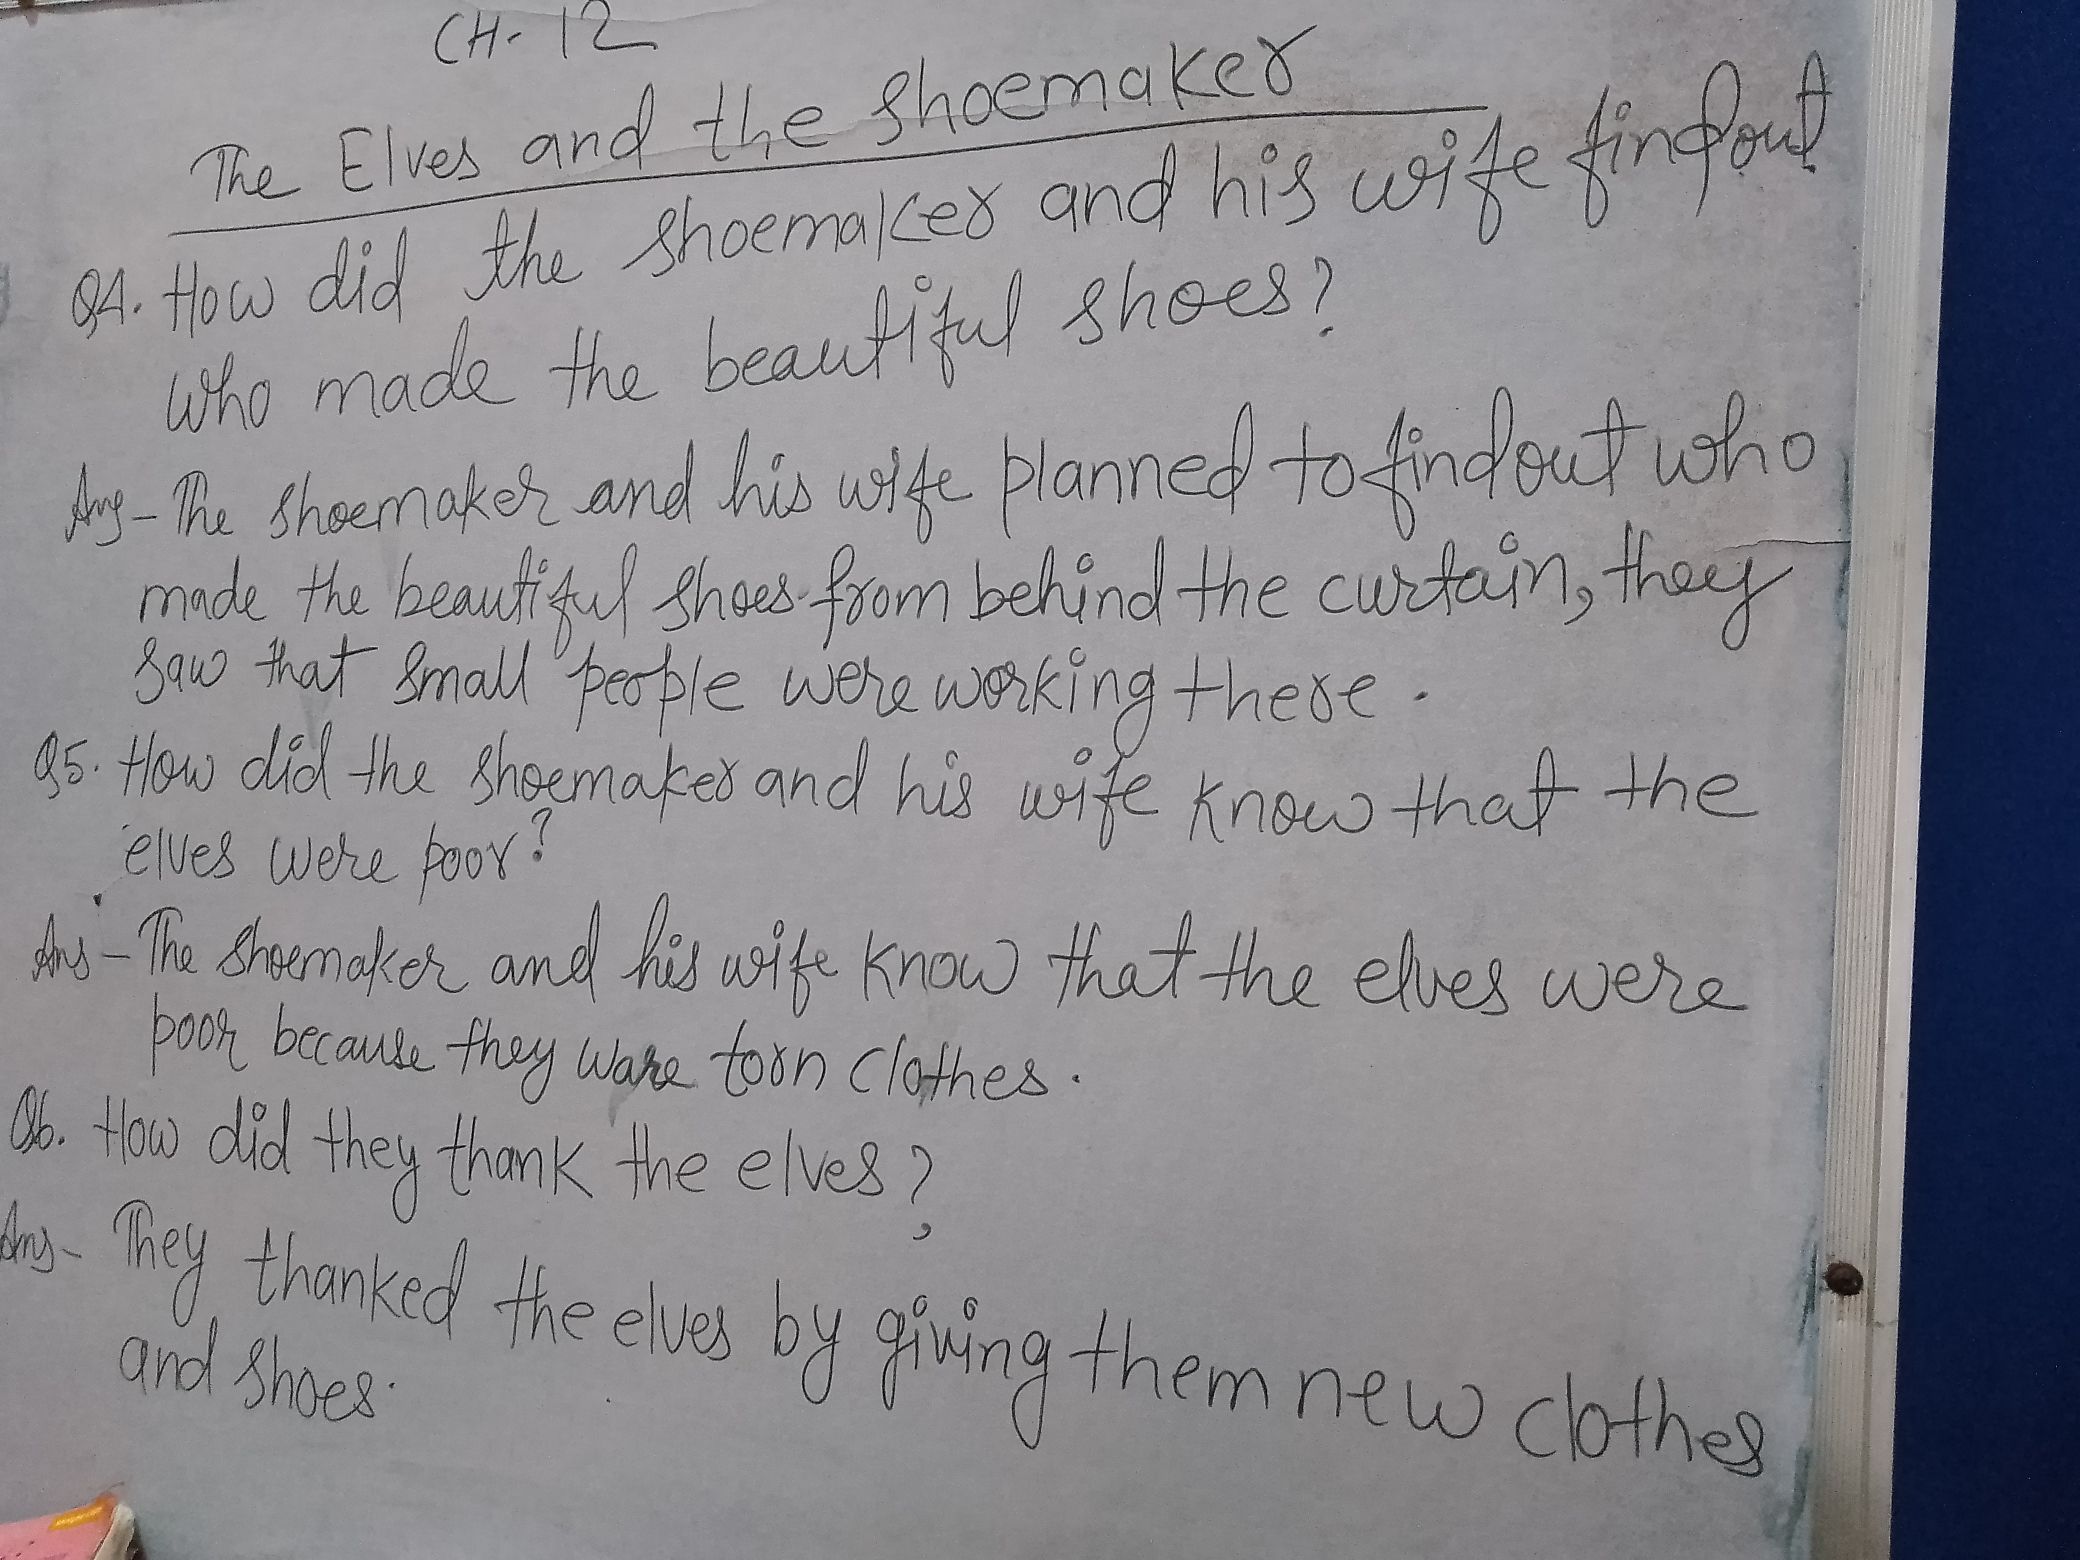 CH-12
The Elves and the Shoemaker
Q4. How did the shoemaker and his wife findout
who made the beautiful shoes?
Ans- The shoemaker and his wife planned to findout who
made the beautiful shoes. from behind the curtain, they
saw that small people were working there.
Q5. How did the shoemaker and his wife know that the
elves were poor?
Ans- The shoemaker and his wife know that the elves were
poor because they ware torn clothes.
Q6. How did they thank the elves?
Ans- They thanked the elves by giving them new clothes
and shoes.